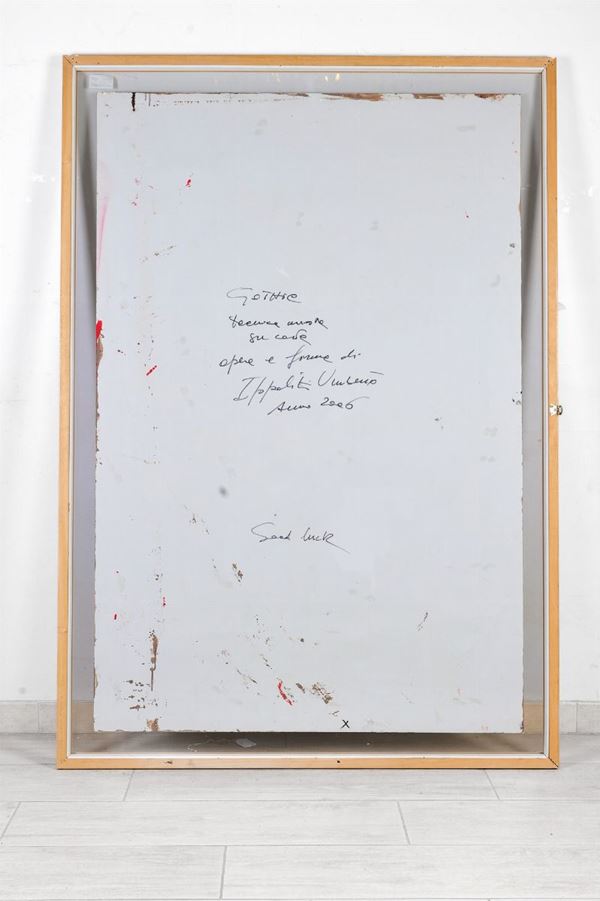 GOTHIC
tecnica mista
su carta
opera e firma di
Ippoliti Umberto
Anno 2006
Good luck
X